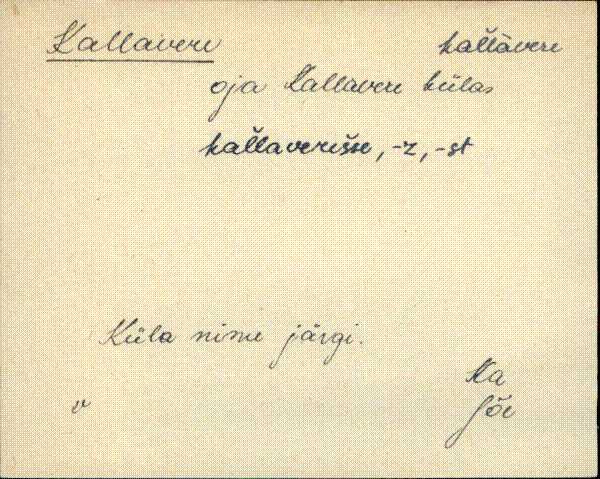 Kallavere kal̆lăvere
oja Kallavere külas
kal̆laverisse, -z, -st
Küla nime järgi.
Ka
v Jõe